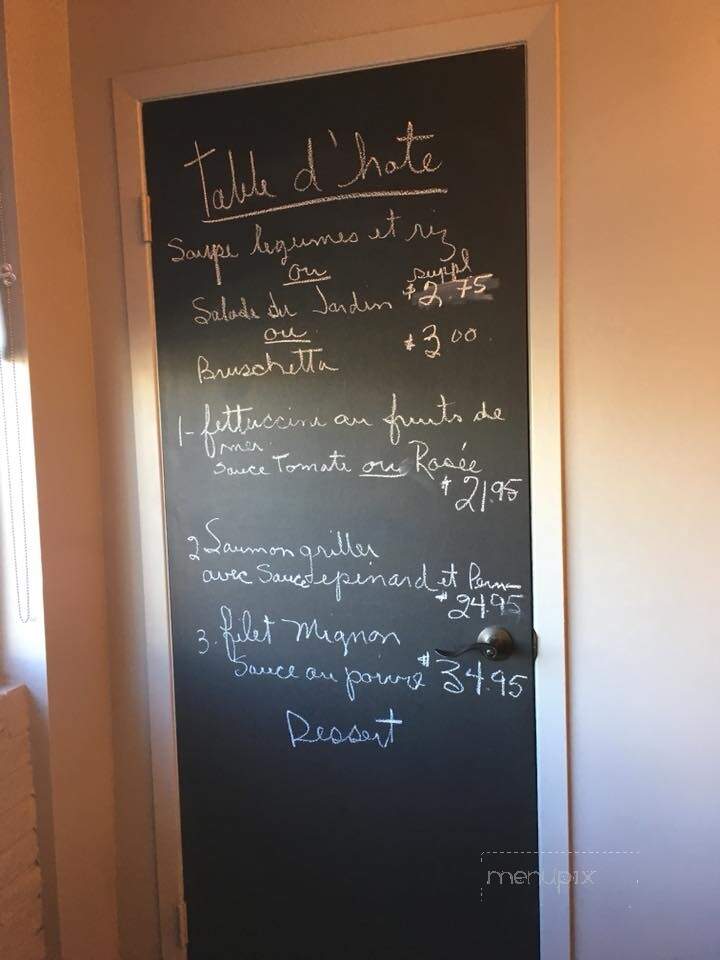 Table d'hote
Soupe legumes et riz
ou
suppl
Salade du Jardin $2.75
ou
Bruschetta $3.00
1- fettuccini au fruits de
mer
Sauce Tomate ou Rosée
$21.95
2 Saumon griller
avec Sauce epinard et Pern
$24.95
3. filet Mignon
Sauce au poivre $34.95
Dessert
menupix